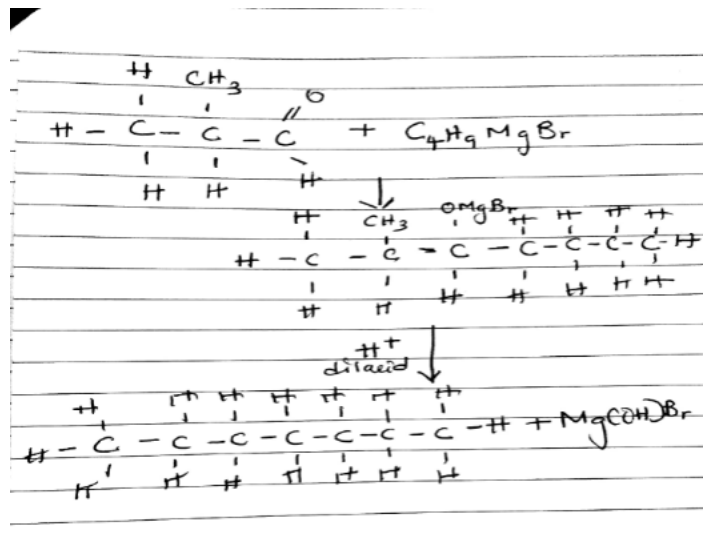 H CH3 O
H - C - C - C + C4H9MgBr
H H H
H CH3 OMgBr H H H H
H - C - C - C - C - C - C - C - H
H H H H H H H
H+
dil acid
H H H H H H H
H - C - C - C - C - C - C - C - H + Mg(OH)Br
H H H H H H H